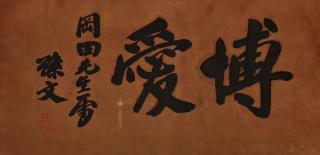 博愛
岡田先生属
孫文